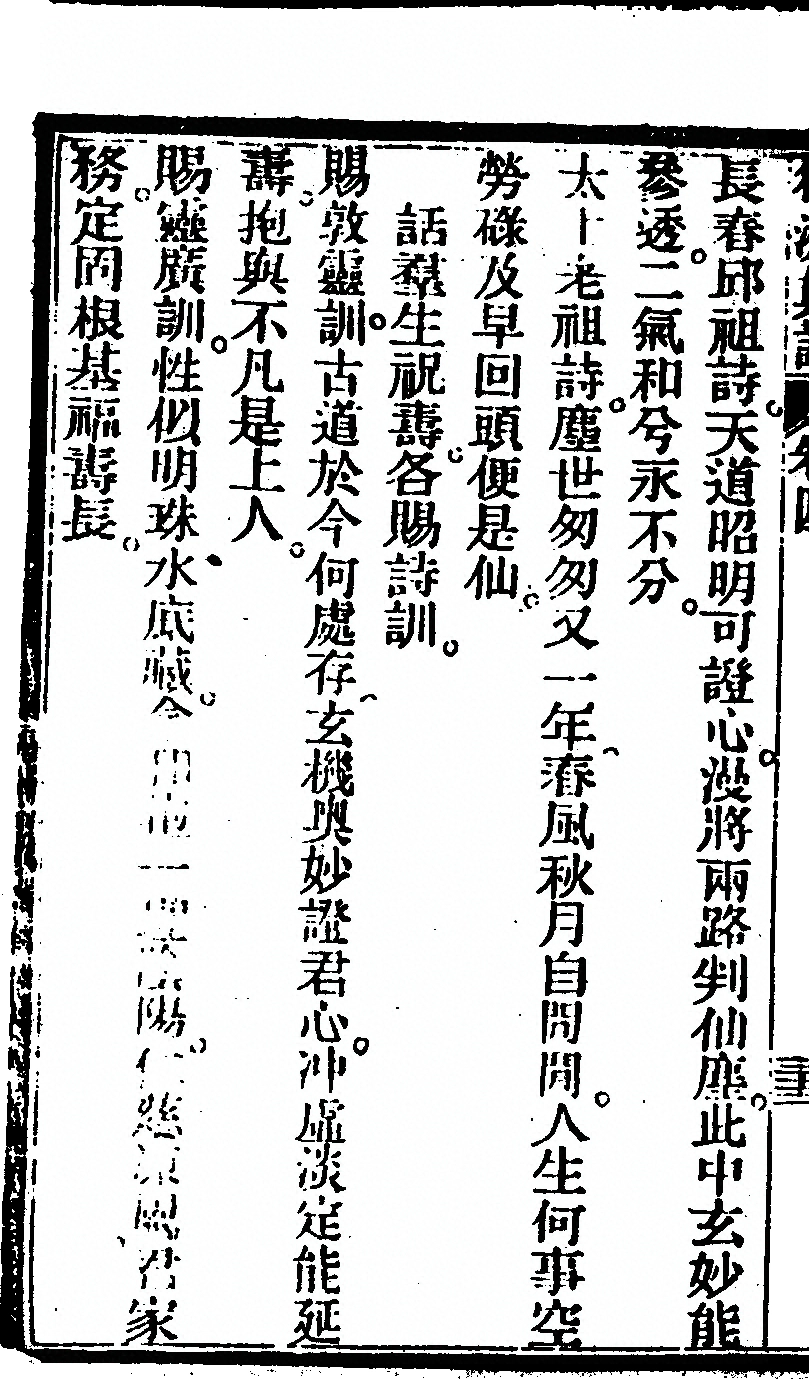 長春邱祖詩。天道昭明可證心。漫將兩路判仙塵。此中玄妙能
參透。二氣和兮永不分。
太上老祖詩。塵世匆匆又一年、春風秋月自閒閒。人生何事空
勞碌及早回頭便是仙。
話羣生祝壽。各賜詩訓。
賜敦靈訓。古道於今何處存、玄機奥妙證君心。冲虛淡定能延
壽。抱與不凡是上人。
賜靈廣訓。性似明珠水底藏。今 一 陽。仁慈 君家
務。定固根基福壽長。
卷四